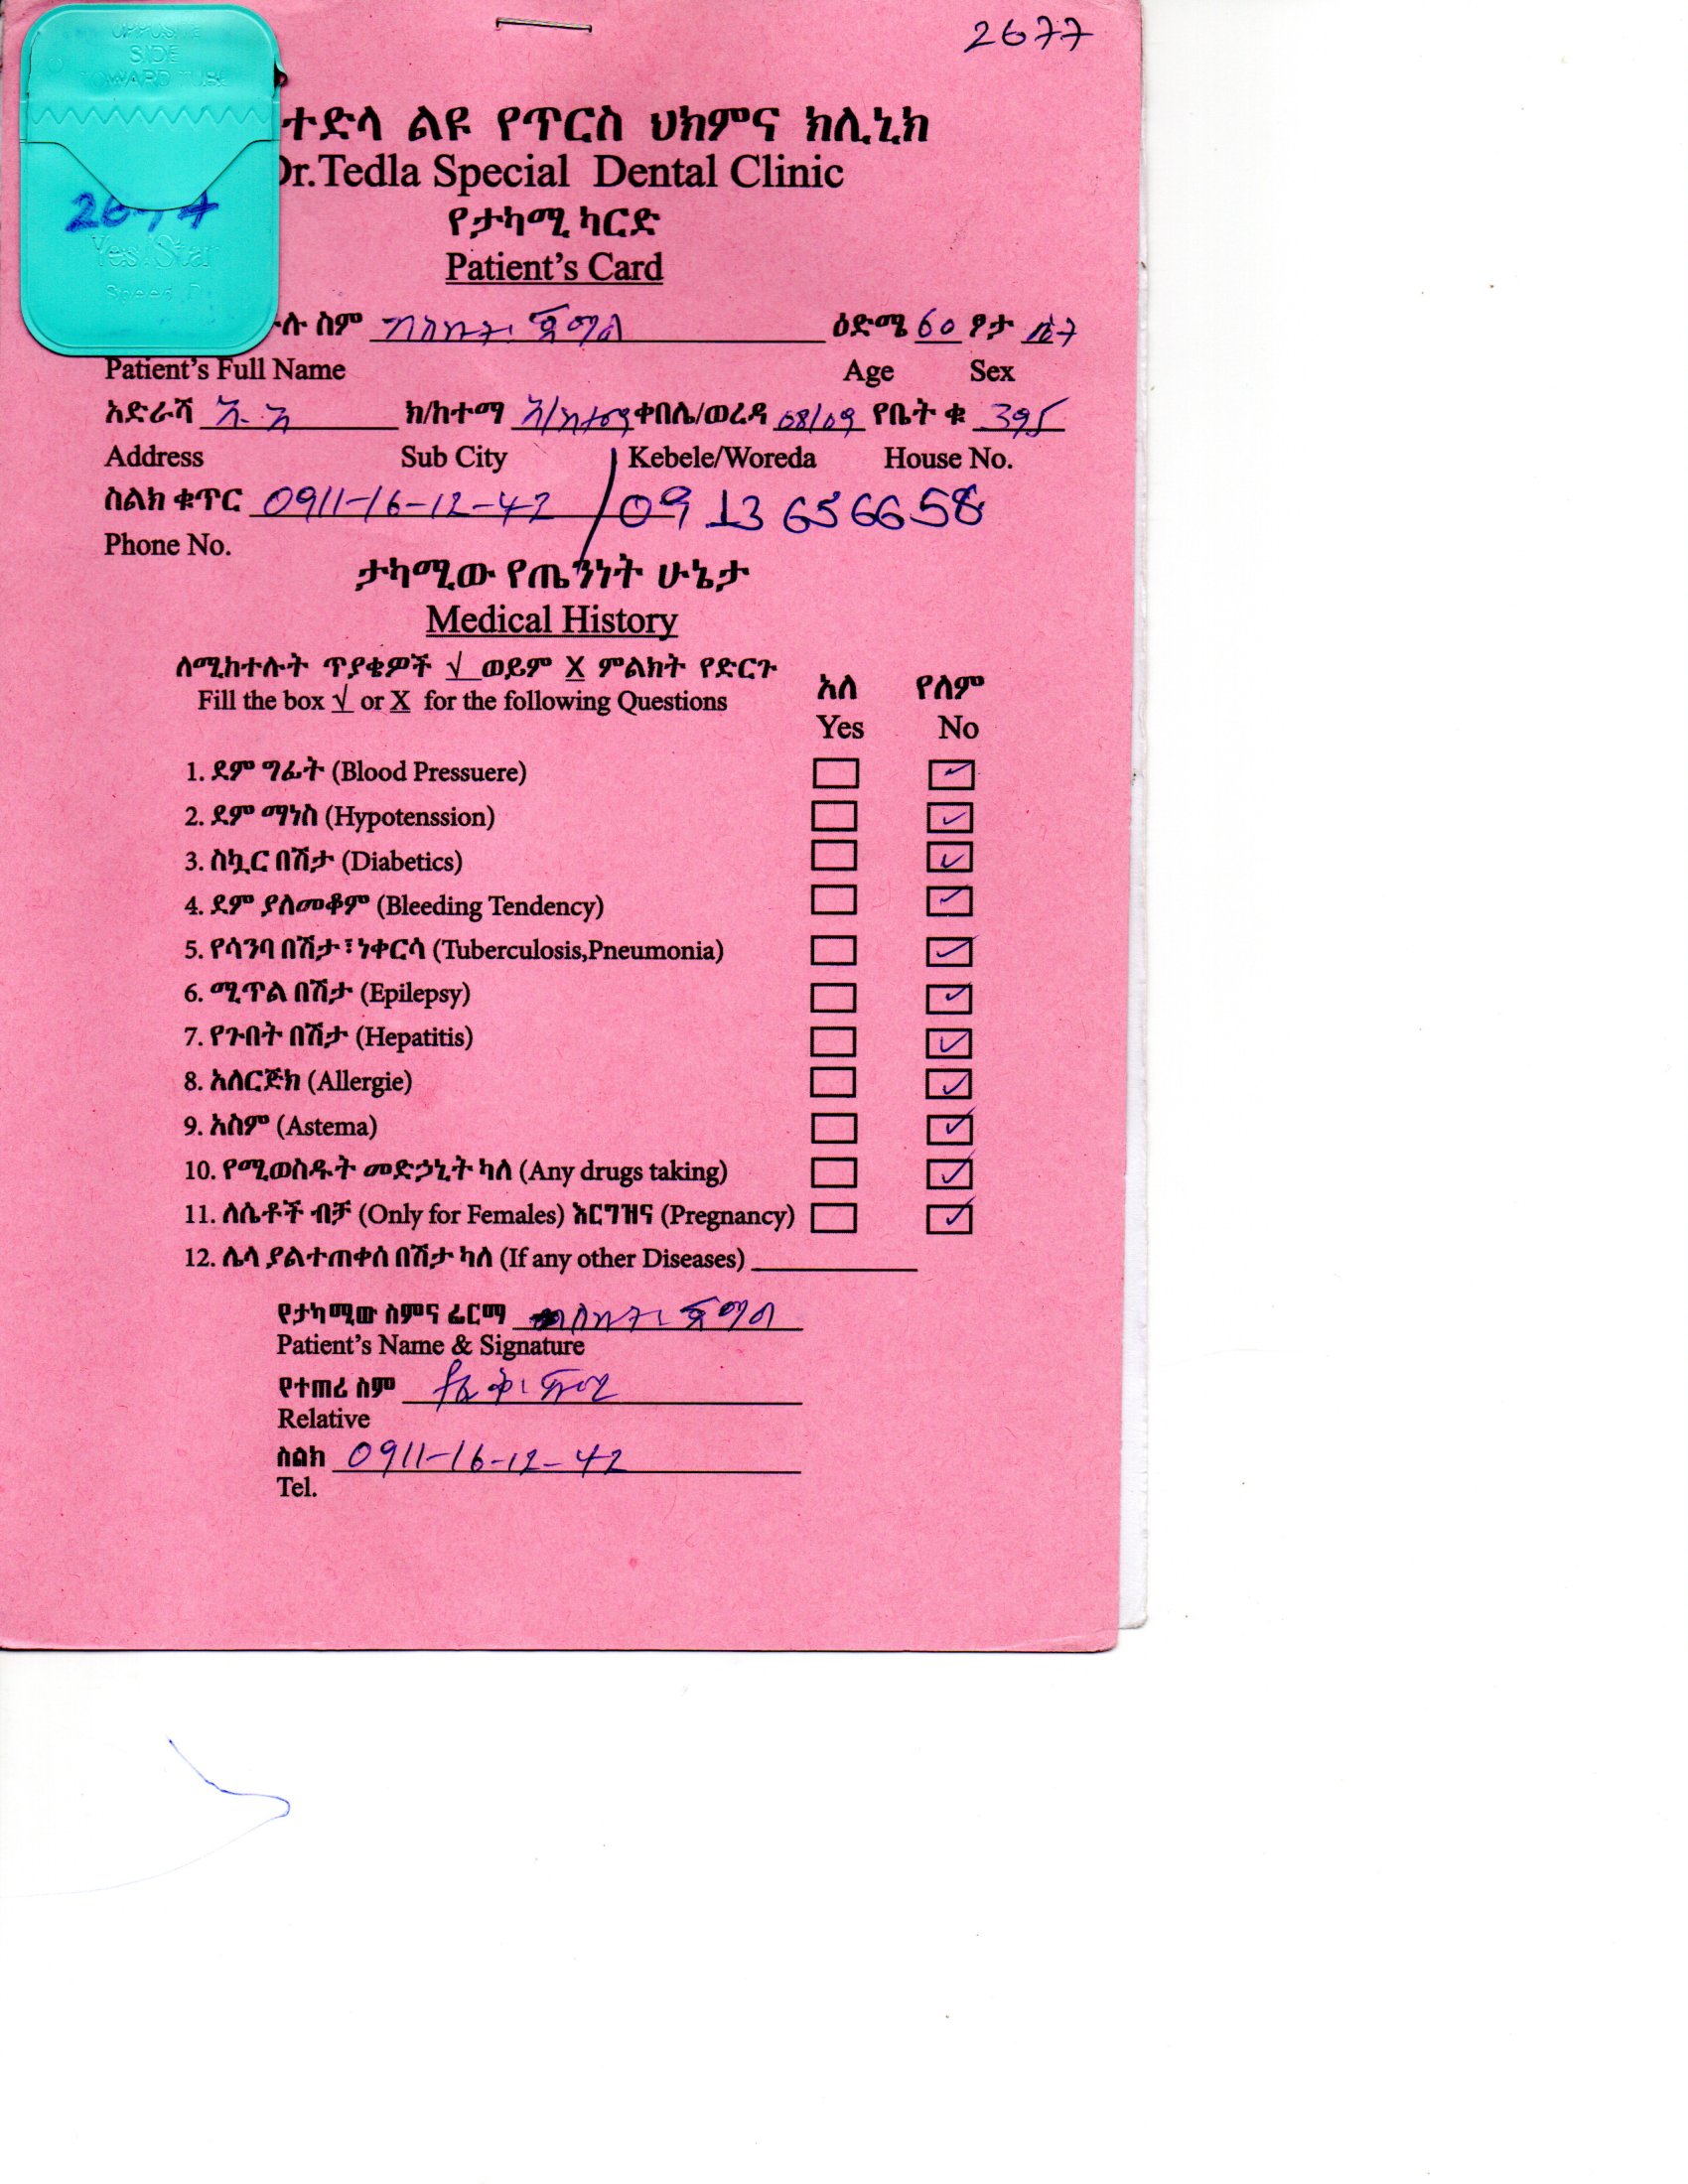 2677
OPPOSITE
SIDE
TOWARD TUBE
ተድላ ልዩ የጥርስ ህክምና ክሊኒክ
Dr.Tedla Special Dental Clinic
2677
የታካሚ ካርድ
Yes!Star
Speed
Patient's Card
ሉ ስም ጃማል ዕድሜ 60 ፆታ ሴት
Patient's Full Name Age Sex
አድራሻ አ.አ ክ/ከተማ አ/ከተማ ቀበሌ/ወረዳ 08/09 የቤት ቁ 395
Address Sub City Kebele/Woreda House No.
ስልክ ቁጥር 0911-16-12-42 / 0913656658
Phone No.
ታካሚው የጤንነት ሁኔታ
Medical History
ለሚከተሉት ጥያቄዎች √ ወይም X ምልክት የድርጉ
Fill the box √ or X for the following Questions
አለ የለም
Yes No
1. ደም ግፊት (Blood Pressuere) ✓
2. ደም ማነስ (Hypotenssion) ✓
3. ስኳር በሽታ (Diabetics) ✓
4. ደም ያለመቆም (Bleeding Tendency) ✓
5. የሳንባ በሽታ፣ነቀርሳ (Tuberculosis,Pneumonia) ✓
6. ሚጥል በሽታ (Epilepsy) ✓
7. የጉበት በሽታ (Hepatitis) ✓
8. አለርጅክ (Allergie) ✓
9. አስም (Astema) ✓
10. የሚወስዱት መድኃኒት ካለ (Any drugs taking) ✓
11. ለሴቶች ብቻ (Only for Females) እርግዝና (Pregnancy) ✓
12. ሌላ ያልተጠቀሰ በሽታ ካለ (If any other Diseases)
የታካሚው ስምና ፊርማ ጃማል
Patient's Name & Signature
የተጠሪ ስም
Relative
ስልክ 0911-16-12-42
Tel.